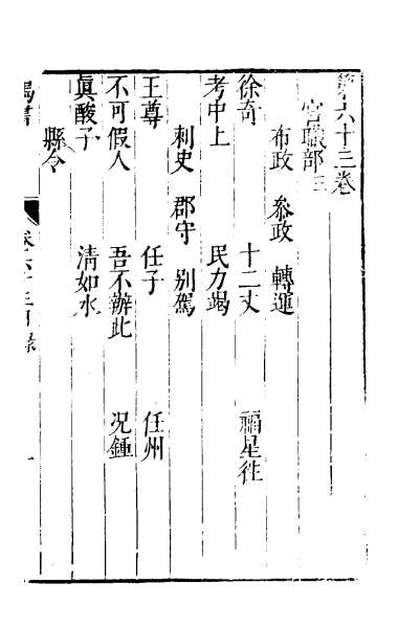 第六十三卷
官職部三
布政　參政　轉運
徐奇　十二丈　福星往
考中上　民力竭
刺史　郡守　别駕
王尊　任子　任州
不可假人　吾不辦此　况鍾
眞酸子　清如水
縣令
卷六十三目錄　一